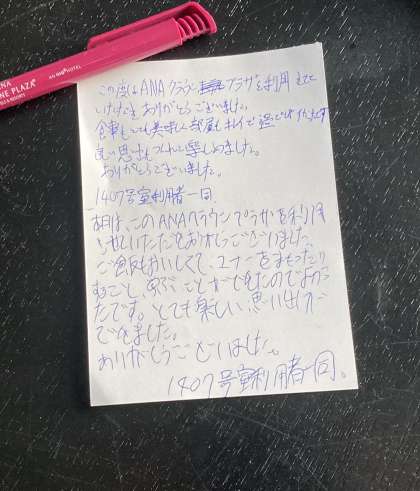 ANA
NE PLAZA
AN IHG HOTEL
この度はANAクラウンプラザを利用させて
いただきありがとうございました。
食事もとても美味しく部屋もキレイで過ごしやすかったです
良い思い出もつくれて楽しめました。
ありがとうございました。
1407号室利用者一同。
このANAクラウンプラザを利用
させていただきありがとうございました。
ご飯もおいしくて、マナーをまもったり
すること、学ぶことができたのでよかっ
たです。とても楽しい思い出が
できました。
ありがとうございました。
1407号室利用者一同。